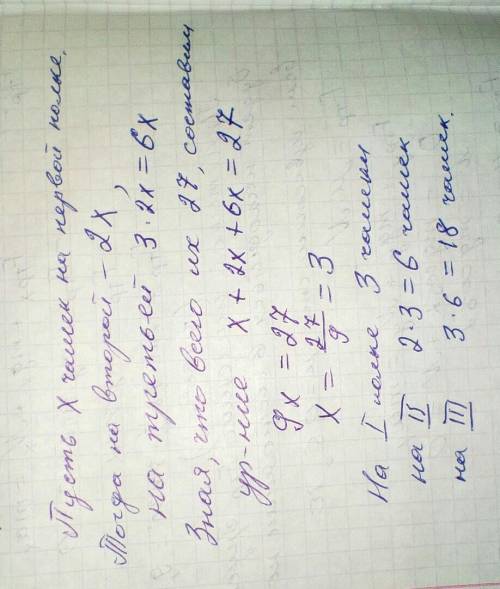 Пусть х чашек на первой полке.
Тогда на второй - 2х,
на третьей 3·2х=6х
Зная, что всего их 27, составим
ур-ние х + 2х + 6х = 27
9х = 27
х = 27/9 = 3
На I полке 3 чашки
на II 2·3=6 чашек
на III 3·6=18 чашек.